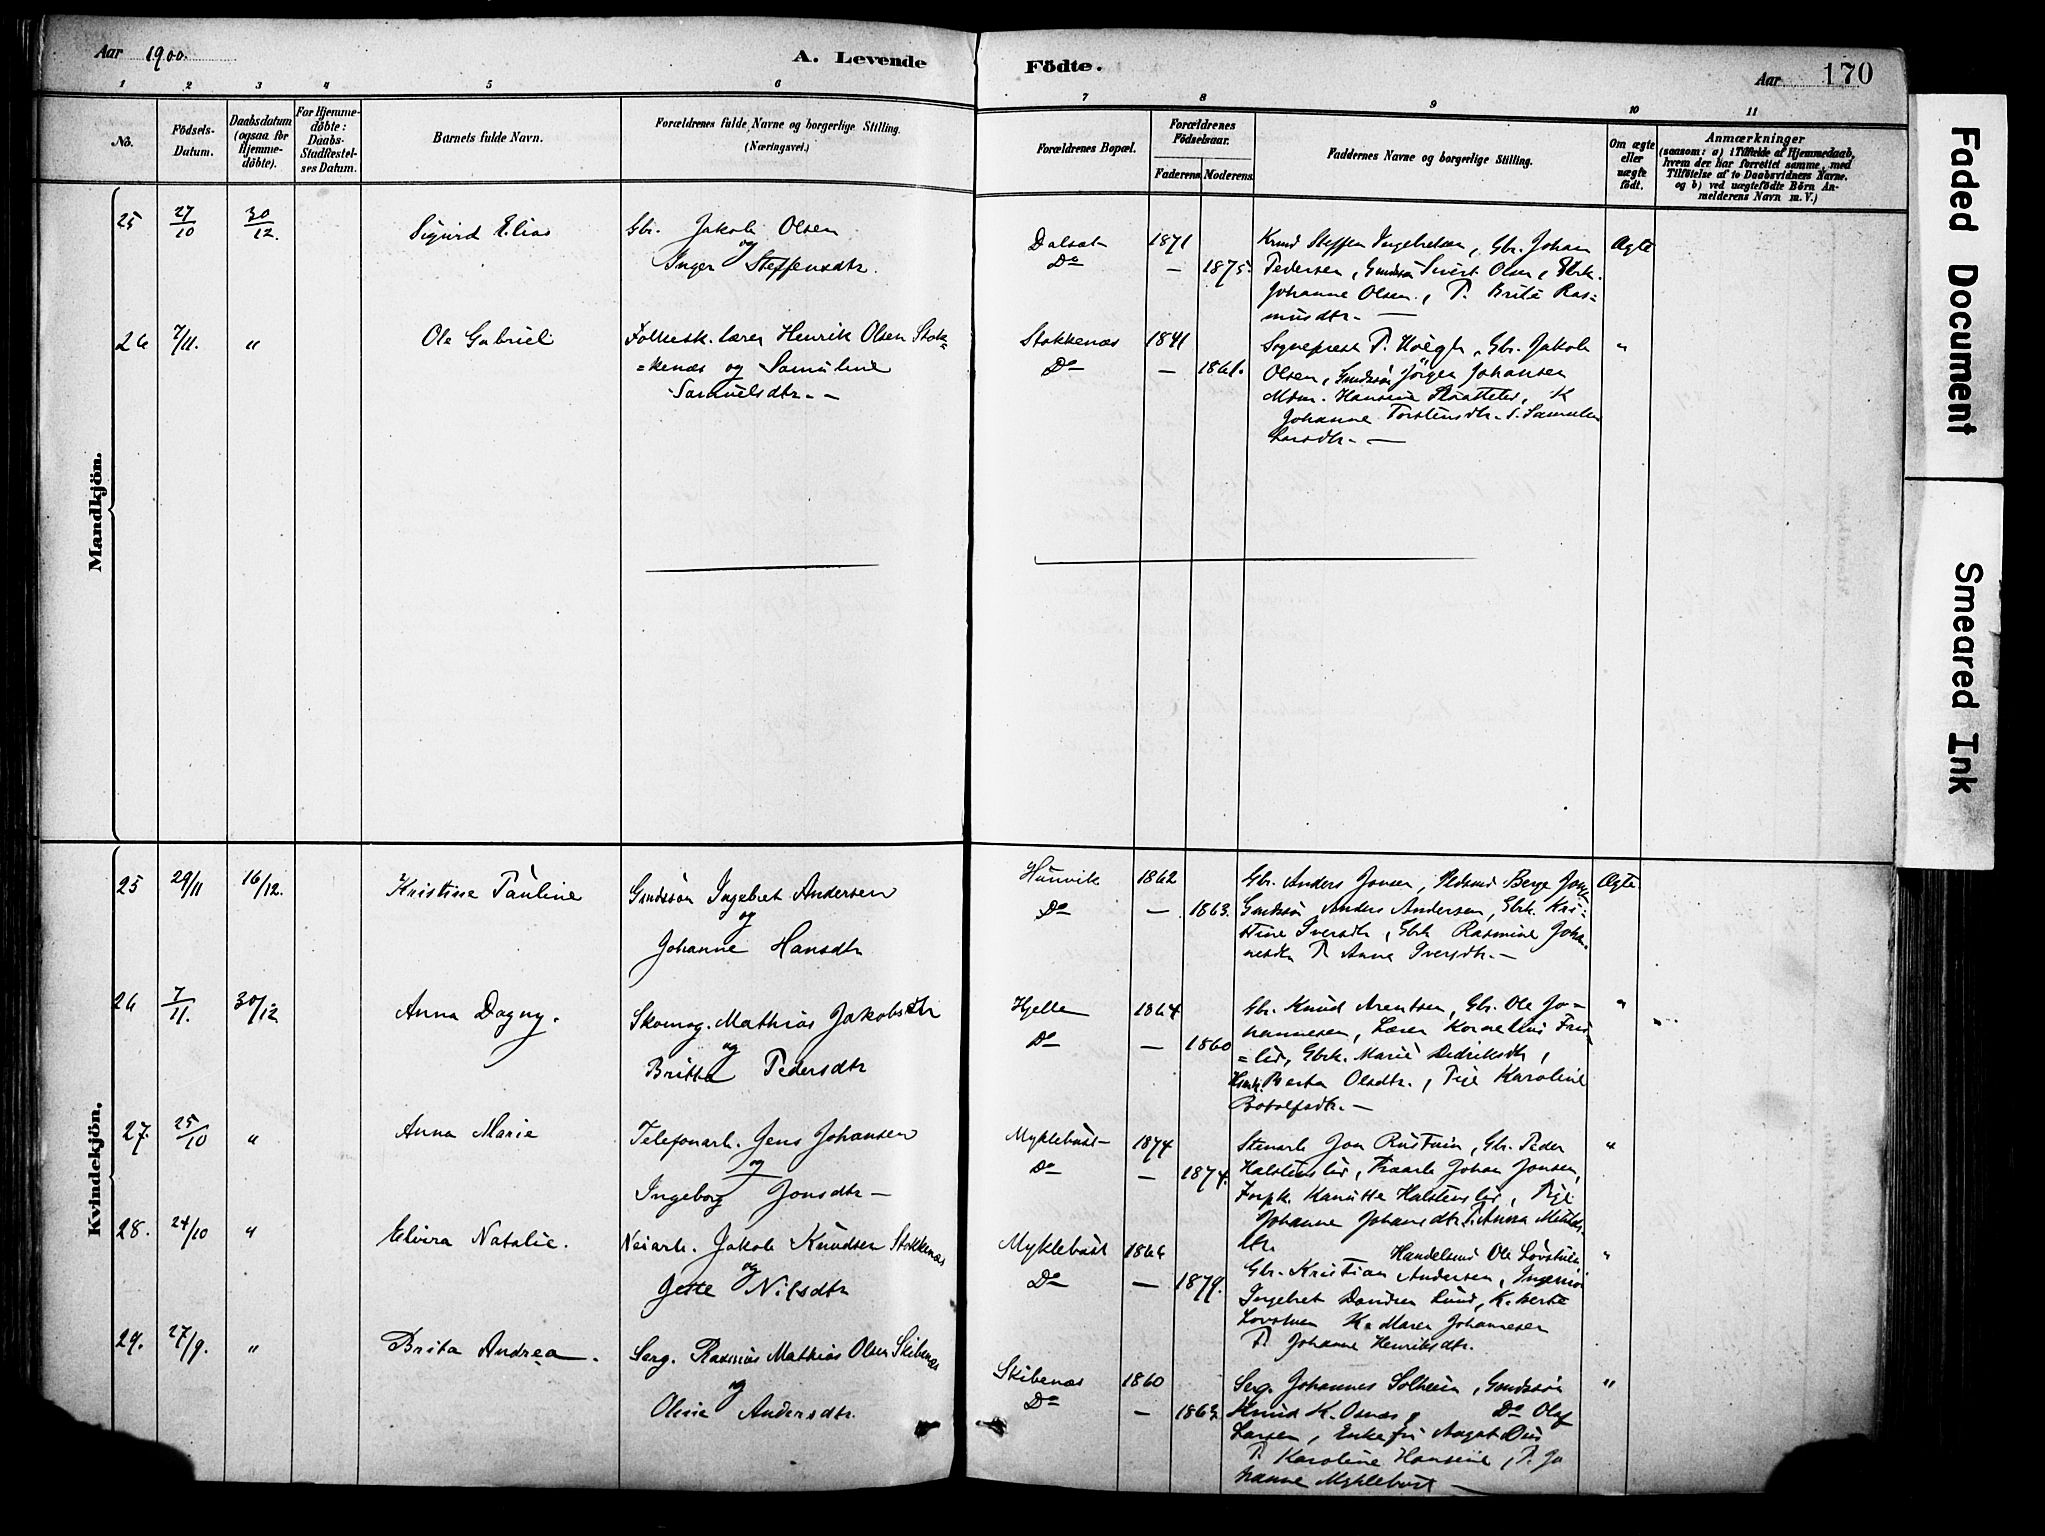 Aar 1900.
A. Levende Födte.
Aar 170
1 2 3 4 5 6 7 8 9 10 11
No.
Födsels-
Datum.
Daabsdatum
(ogsaa for
Hjemme-
döbte).
For Hjemme-
döbte:
Daabs-
Stadfæstel-
ses Datum.
Barnets fulde Navn.
Forældrenes fulde Navne og borgerlige Stilling.
(Næringsvei.)
Forældrenes Bopæl.
Forældrenes
Födselsaar.
Faderens Moderens.
Faddernes Navne og borgerlige Stilling.
Om ægte
eller
uægte
födt.
Anmærkninger
(saasom: a) i Tilfælde af Hjemmedaab,
hvem der har forrettet samme, med
Tilföielse af to Daabsvidners Navne.
og b) ved uægtefödte Börn An-
melderens Navn m. V.)
Mandkjön.
25 27/10 30/12. Sigurd Elias
Gbr. Jakob Olsen
og
Inger Steffensdtr.
1871
Do — 1875.
Steffen Gbr. Johan
Pedersen, Olsen,
Johanne Olsen, P. Brite Ras=
musdtr. —
Ægte
26 7/11. " Ole Gabriel
Folkesk.lærer Henrik Olsen Stok=
=kenæs og Samuline
Samuelsdtr. —
Stokkenæs 1841
Do — 1861.
Sogneprest Gbr. Jakob
Olsen, Gmdssøn Jörgen Johansen
Johanne Torstensdtr.
Larsdtr. —
"
Kvindekjön.
25 29/11 16/12. Kristine Pauline
Gmdssøn Ingebret Andersen
og
Johanne Hansdtr
Hunvik 1862
Do — 1863.
Gbr. Anders Jonsen, Berge
Gmdssøn Anders Andersen, Gbrk. Kri=
stine Iversdtr, Gbrk Rasmine Joha
nesdtr P. Anna Iversdtr. —
Ægte
26 7/11. 30/12 Anna Dagny.
Skomag. Mathias Jakobsdtr
og
Britha Pedersdtr
Hjelle 1864
Do — 1860
Gbr. Knud Arentsen, Gbr. Ole Jo=
hannesen, Lærer Kornelius
=lid, Gbrk. Marie Didriksdtr,
Berta Olsdtr., Pige Karoline
Botolfsdtr. —
"
27. 25/10 " Anna Marie
Telefonarb. Jens Johansen
og
Ingeborg Jonsdtr —
Myklebust 1874
Do — 1874.
Stenarb Jon Gbr. Peder
Halstenslid, Johan Jonsen,
Halstenslid, Pige
Johanne Johansdtr. P. Anna
"
28. 24/10 " Elvira Natalie.
Veiarb. Jakob Knudsen Stokkenæs
og
Jette Nilsdtr
Myklebust 1866
Do — 1879.
Handelsmd Ole Løvstuen
Gbr. Kristian Andersen,
Ingebret Lund,
Løvstuen K. Maren Johannesen
P. Johanne Henriksdtr.
"
29. 27/9. " Brita Andrea.
Serg. Rasmus Mathias Olsen Skibenæs
og
Oline Andersdtr.
Skibenæs 1860
Do — 1863
Serg. Johannes Solheim, Gmdssøn
Knud K. Osnæs, Do Olaf
Larsen, Enkefru
P. Karoline Hansine, P. Jo
hanne Myklebust —
"
Faded Document
Smeared Ink